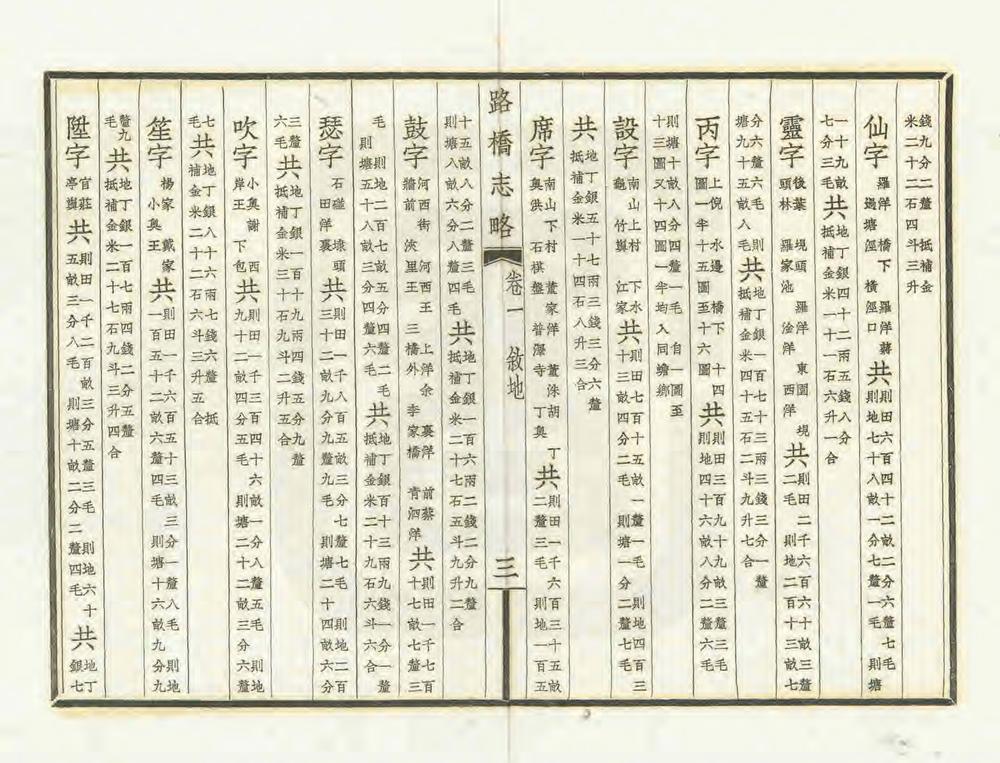 錢九分二釐 抵補金米二十二石四斗三升
仙字 羅洋 橋下 羅洋蔣 邊塘涇 橫涇口 共則田六百四十二畝二分六釐七毛 則地七十八畝一分七釐一毛 則塘
一十九畝七分三毛 共地丁銀四十二兩五錢八分 抵補金米一十一石六升一合
靈字 後葉 垷頭 羅洋 東園 垷頭林 羅家池 淦洋 西洋 共則田二千六百六十畝三釐二毛 則地二百十三畝七
分六釐六毛 則塘九十五畝八毛 共地丁銀一百七十三兩三錢三分一釐 抵補金米四十五石二斗九升七合
丙字 上倪 水邊 橋下 十四圖一半十五圖至十六圖 共則田三百九十九畝三釐三毛 則地四十六畝八分二釐六毛
則塘十畝八分四釐一毛 自一圖至十三圖又十四圖一半均入同蟾鄉
設字 南山上村 下水龜 竹嶴 江家 共則田七百十五畝一釐一毛 則地四百三十三畝四分二毛 則塘一分二釐七毛
共地丁銀五十七兩三錢三分六釐 抵補金米一十四石八升三合
席字 南山下村 董家洋 董洙胡 丁奥洪 石棋盤 普澤寺 丁奥 共則田一千六百三十五畝二釐三毛 則地一百五
路橋志略 卷一 敘地 三
十五畝八分二釐三毛 則塘八畝六分八釐四毛 共地丁銀一百六兩二錢二分九釐 抵補金米二十七石五斗九升二合
鼓字 河西街 河西王 上洋余 裏洋 前蔡 牆前 浹里王 三橋外 李家橋 青泗洋 共則田一千七百十七畝七釐三
毛 則地二百七畝五分四釐二毛 則塘五十八畝三分四釐六毛 共地丁銀百十三兩九錢一分一釐 抵補金米二十九石六斗六合
瑟字 石磋 埭頭 田洋裏 共則田一千八百五畝三分七釐七毛 則地二百三十二畝九分九釐九毛 則塘二十四畝六分
三釐六毛 共地丁銀一百十九兩四錢五分九釐 抵補金米三十石九斗二升五合
吹字 小奥謝 西岸王 下包 共則田一千三百四十六畝一分八釐五毛 則地九十二畝四分五毛 則塘二十二畝三分六釐
七毛 共地丁銀八十六兩七錢六釐 抵補金米二十二石六斗三升五合
笙字 楊家 戴家 小奥王 共則田一千六百五十三畝三分一釐八毛 則地一百五十二畝六釐四毛 則塘十六畝九分九
釐九毛 共地丁銀一百七兩四錢二分五釐 抵補金米二十七石九斗三升四合
陞字 官莊 亭嶼 共則田一千二百畝三分五釐三毛 則地六十五畝三分八毛 則塘十畝二分二釐四毛 共地丁銀七